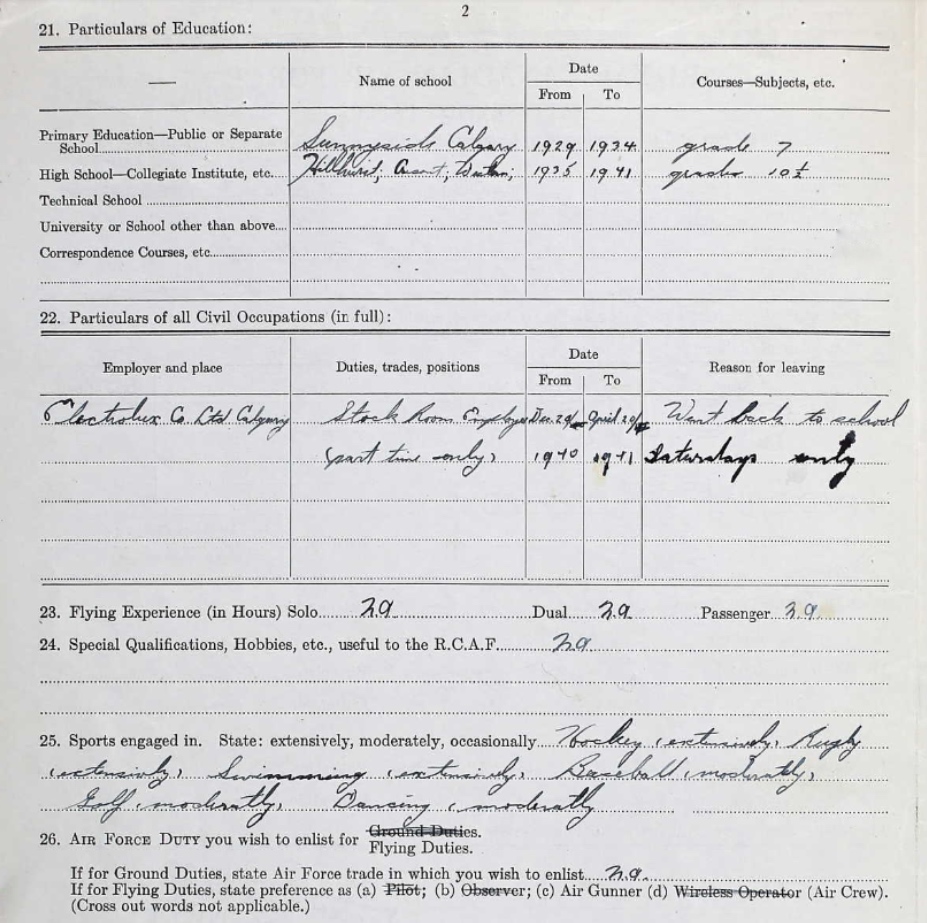 2
21. Particulars of Education:
— Name of school Date Courses—Subjects, etc.
From To
Primary Education—Public or Separate
School Sunnyside Calgary 1929 1934 grade 7
High School—Collegiate Institute, etc. Hillhurst; 1935 1941 grade 10½
Technical School
University or School other than above
Correspondence Courses, etc.
22. Particulars of all Civil Occupations (in full):
Employer and place Duties, trades, positions Date Reason for leaving
From To
Electrolux Co. Ltd. Calgary Stock Room Employee Dec. April Went back to school
(part time only) 1940 1941 Saturdays only
23. Flying Experience (in Hours) Solo Dual Passenger
24. Special Qualifications, Hobbies, etc., useful to the R.C.A.F.
25. Sports engaged in. State: extensively, moderately, occasionally Hockey (extensively) Rugby
(extensively) Swimming (extensively) Baseball (moderatly)
Golf (moderatly) Dancing (moderatly
26. AIR FORCE DUTY you wish to enlist for Ground Duties.
Flying Duties.
If for Ground Duties, state Air Force trade in which you wish to enlist
If for Flying Duties, state preference as (a) Pilot; (b) Observer; (c) Air Gunner (d) Wireless Operator (Air Crew).
(Cross out words not applicable.)